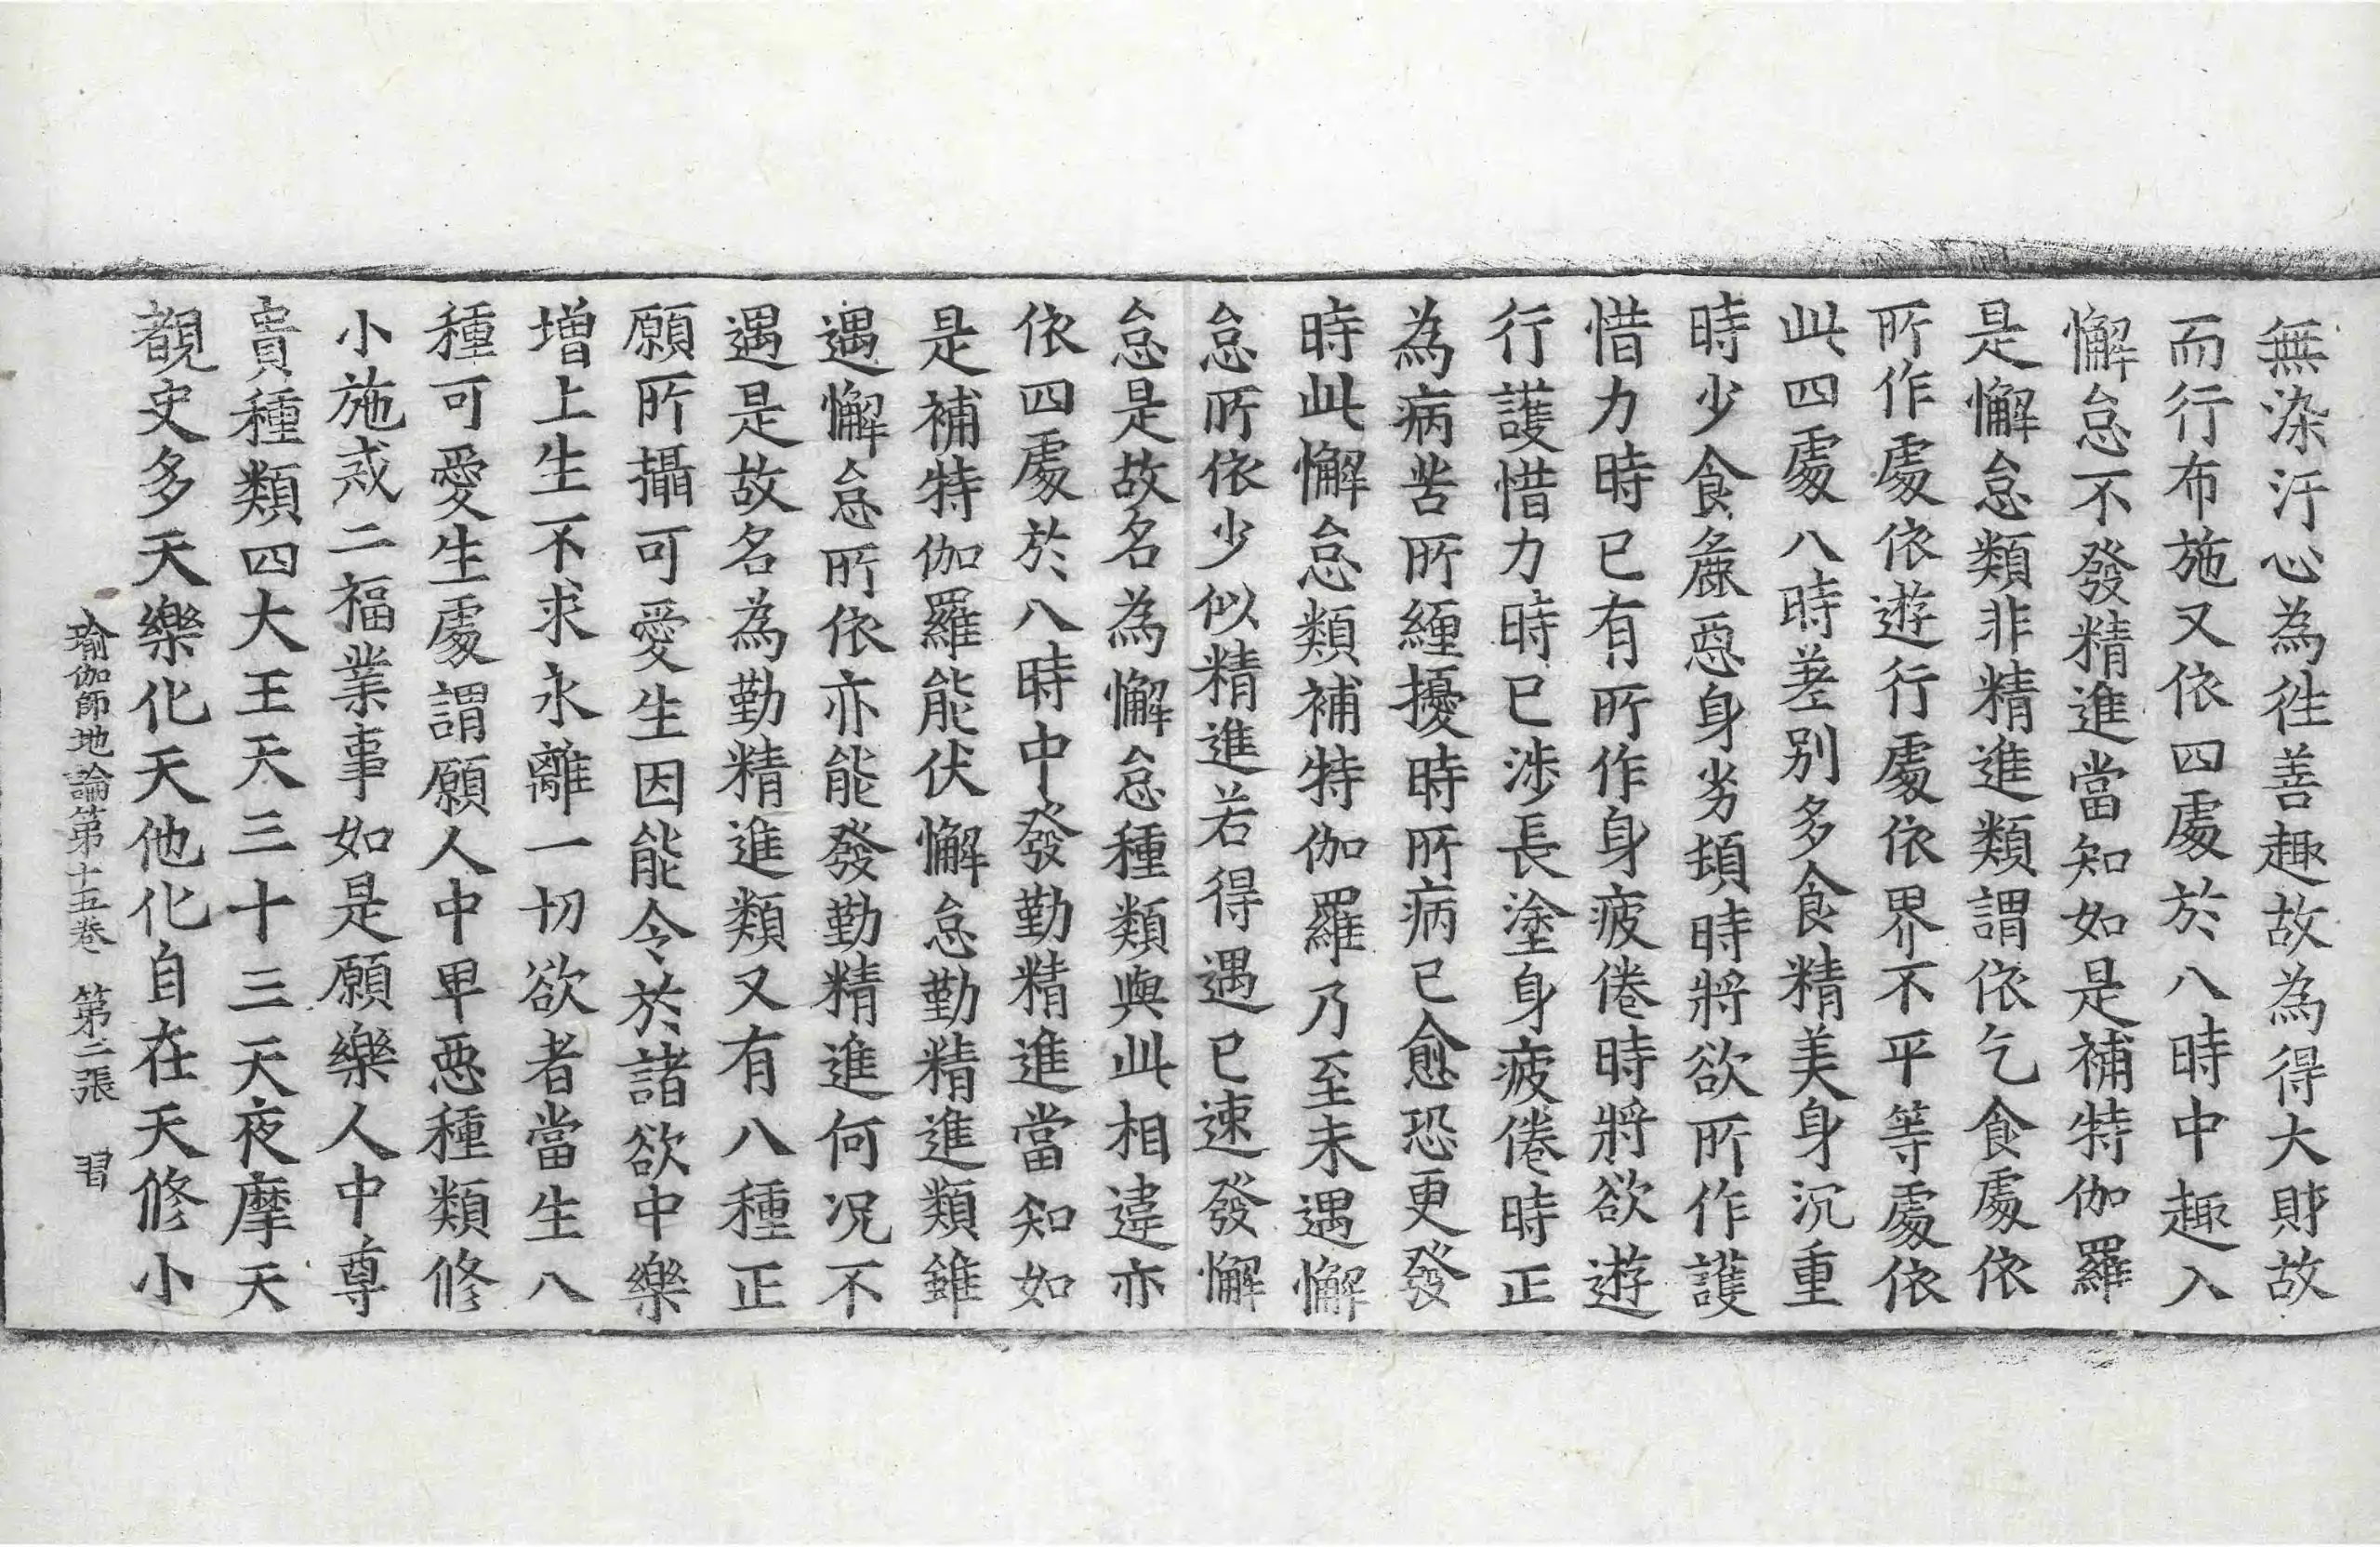 無染汙心為往善趣故為得大財故
而行布施又依四處於八時中趣入
懈怠不發精進當知如是補特伽羅
是懈怠類非精進類謂依乞食處依
所作處依遊行處依界不平等處依
此四處八時差別多食精美身沉重
時少食麁惡身劣頓時將欲所作護
惜力時已有所作身疲倦時將欲遊
行護惜力時已涉長塗身疲倦時正
為病苦所纏擾時所病已愈恐更發
時此懈怠類補特伽羅乃至未遇懈
怠所依少似精進若得遇已速發懈
怠是故名為懈怠種類與此相違亦
依四處於八時中發勤精進當知如
是補特伽羅能伏懈怠勤精進類雖
遇懈怠所依亦能發勤精進何況不
遇是故名為勤精進類又有八種正
願所攝可愛生因能令於諸欲中樂
增上生不求永離一切欲者當生八
種可愛生處謂願人中卑惡種類修
小施戒二福業事如是願樂人中尊
貴種類四大王天三十三天夜摩天
覩史多天樂化天他化自在天修小
瑜伽師地論第十五卷 第二張 習